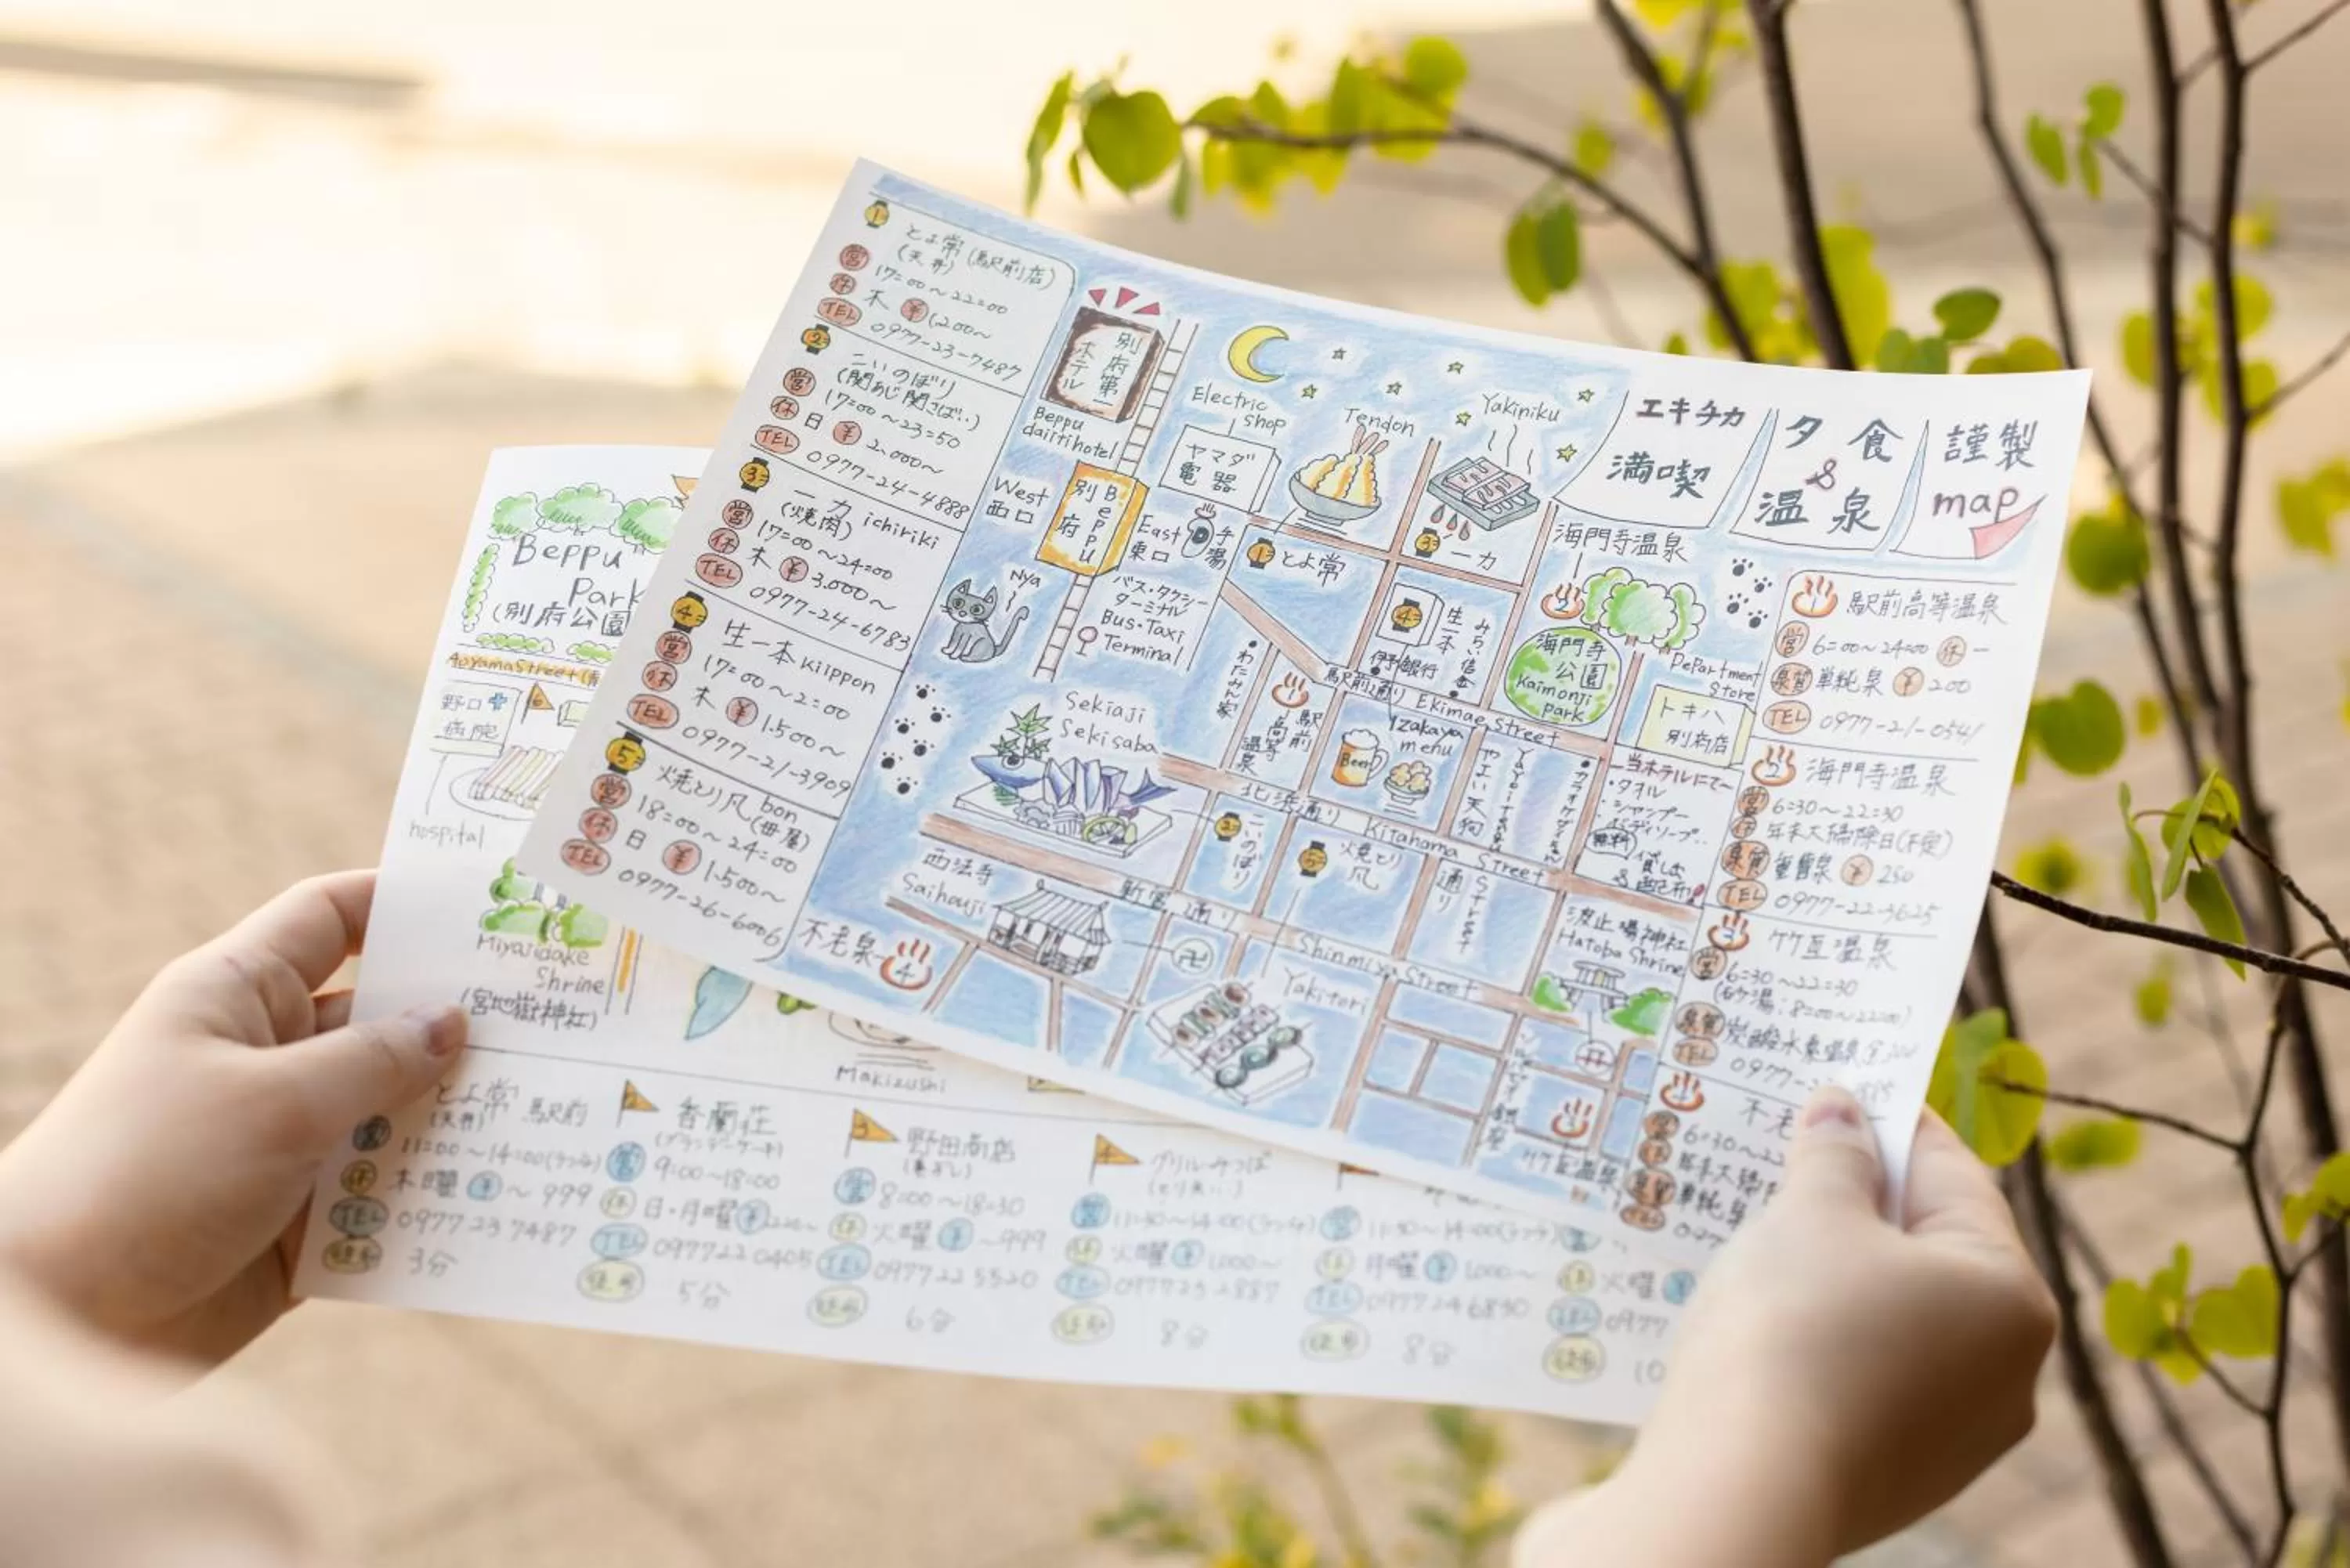 1
とよ常(駅前店)
(天丼)
営 17:00〜22:00
休 木 ¥1,200〜
TEL 0977-23-7487
2
こいのぼり
(関あじ関さば..)
営 17:00〜23:50
休 日 ¥2,000〜
TEL 0977-24-4888
3
一力 ichiriki
(焼肉)
営 17:00〜24:00
休 木 ¥3,000〜
TEL 0977-24-6783
4
生一本 kiippon
営 17:00〜2:00
休 木 ¥1,500〜
TEL 0977-21-3909
5
焼とり凡 bon
営 18:00〜24:00
休 日 ¥1,500〜
TEL 0977-26-6006
別府第一
ホテル
Beppu
daiitihotel
West
西口
Beppu
別府
East
東口
手湯
Nya
バス・タクシー
ターミナル
Bus・Taxi
Terminal
Electric
Shop
ヤマダ
電器
Tendon
1 とよ常
Yakiniku
3 一力
エキチカ
満喫
夕食
&
温泉
謹製
map
海門寺温泉
2
海門寺
公園
Kaimonji
park
4
生一本
みらい信金
伊予銀行
駅前通り
Ekimae Street
わたみん家
1
駅前
高等
温泉
Izakaya
menu
Beer
やよい天狗
Department
Store
トキハ
別府店
当ホテルにて
・タオル
・シャンプー
・ボディソープ..
無料
Sekiaji
Sekisaba
北浜通り
Kitahama Street
2 こいのぼり
5 焼とり凡
通り
Street
西法寺
Saihouji
新宮通り
Shinmiya Street
卍
不老泉
4
Yakitori
波止場神社
Hatoba Shrine
竹瓦温泉
1 駅前高等温泉
営 6:00〜24:00 休 ー
泉質 単純泉 ¥200
TEL 0977-21-0541
2 海門寺温泉
営 6:30〜22:30
休 年末大掃除日(不定)
泉質 重曹泉 ¥250
TEL 0977-22-3625
竹瓦温泉
営 6:30〜22:30
(砂湯:8:00〜22:00)
泉質
TEL
不老
6:30〜22
Beppu
Park
(別府公園
Aoyama Street
野口
病院
6
hospital
Miyajidake
Shrine
(宮地嶽神社)
Makizushi
とよ常 駅前
(天丼)
営 11:00〜14:00(ランチ)
休 木曜 ¥〜999
TEL 0977 23 7487
徒歩 3分
2 香蘭荘
営 9:00〜18:00
休 日・月曜 ¥
TEL 0977 22 0405
徒歩 5分
3 野田商店
営 8:00〜18:30
休 火曜 ¥〜999
TEL 0977 22 5520
徒歩 6分
4 グリルみつば
営 11:30〜14:00(ランチ)
休 火曜 ¥1,000〜
TEL 0977 23 2887
徒歩 8分
営 11:30〜14:00(ランチ)
休 月曜 ¥1,000〜
TEL 0977 24 6830
徒歩 8分
休 火曜 ¥
TEL 0977
徒歩 10